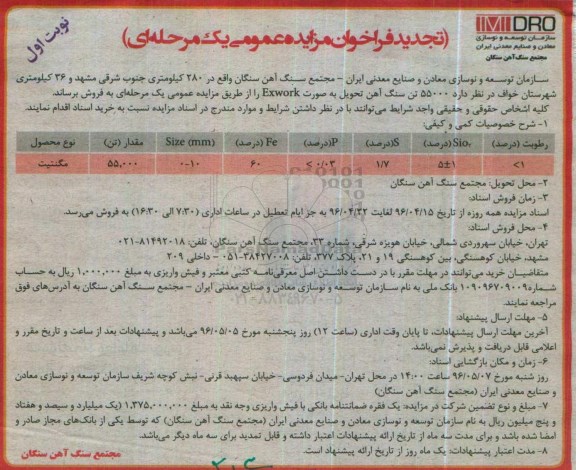 IMIDRO
سازمان توسعه و نوسازی
معادن و صنایع معدنی ایران
مجتمع سنگ آهن سنگان
(تجدید فراخوان مزایده عمومی یک مرحله‌ای)
نوبت اول
سازمان توسعه و نوسازی معادن و صنایع معدنی ایران - مجتمع سنگ آهن سنگان واقع در ۲۸۰ کیلومتری جنوب شرقی مشهد و ۳۶ کیلومتری
شهرستان خواف در نظر دارد ۵۵۰۰۰ تن سنگ آهن تحویل به صورت Exwork را از طریق مزایده عمومی یک مرحله‌ای به فروش برساند.
کلیه اشخاص حقوقی و حقیقی واجد شرایط می‌توانند با در نظر داشتن شرایط و موارد مندرج در اسناد مزایده نسبت به خرید اسناد اقدام نمایند.
۱- شرح خصوصیات کمی و کیفی:
نوع محصول | مقدار (تن) | Size (mm) | Fe (درصد) | P(درصد) | S(درصد) | Sio۲(درصد) | رطوبت (درصد)
مگنتیت | ۵۵,۰۰۰ | ۰-۱۰ | ۶۰ | < ۰/۰۳ | ۱/۷ | ۵±۱ | <۱
۲- محل تحویل: مجتمع سنگ آهن سنگان
۳- زمان فروش اسناد:
اسناد مزایده همه روزه از تاریخ ۹۶/۰۴/۱۵ لغایت ۹۶/۰۴/۲۲ به جز ایام تعطیل در ساعات اداری (۷:۳۰ الی ۱۶:۳۰) به فروش می‌رسد.
۴- محل فروش اسناد:
تهران، خیابان سهروردی شمالی، خیابان هویزه شرقی، شماره ۳۳، مجتمع سنگ آهن سنگان، تلفن: ۸۱۴۹۲۰۱۸-۰۲۱
مشهد، خیابان کوهسنگی، بین کوهسنگی ۱۹ و ۲۱، پلاک ۳۷۷، تلفن: ۳۸۴۲۷۰۰۸-۰۵۱ - داخلی ۲۰۹
متقاضیان خرید می‌توانند در مهلت مقرر با در دست داشتن اصل معرفی‌نامه کتبی معتبر و فیش واریزی به مبلغ ۱,۰۰۰,۰۰۰ ریال به حساب
شماره ۱۰۹۰۹۶۷۰۹۰۰۹ بانک ملی به نام سازمان توسعه و نوسازی معادن و صنایع معدنی ایران - مجتمع سنگ آهن سنگان به آدرس‌های فوق
مراجعه نمایند.
۵- مهلت ارسال پیشنهاد:
آخرین مهلت ارسال پیشنهادات، تا پایان وقت اداری (ساعت ۱۲) روز پنجشنبه مورخ ۹۶/۰۵/۰۵ می‌باشد و پیشنهادات بعد از ساعت و تاریخ مقرر و
اعلامی قابل دریافت و پذیرش نمی‌باشد.
۶- زمان و مکان بازگشایی اسناد:
روز شنبه مورخ ۹۶/۰۵/۰۷ ساعت ۱۴:۰۰ در محل تهران-میدان فردوسی-خیابان سپهبد قرنی- نبش کوچه شریف سازمان توسعه و نوسازی معادن
و صنایع معدنی ایران (مجتمع سنگ آهن سنگان)
۷- مبلغ و نوع تضمین شرکت در مزایده: یک فقره ضمانتنامه بانکی یا فیش واریزی وجه نقد به مبلغ ۱,۳۷۵,۰۰۰,۰۰۰ (یک میلیارد و سیصد و هفتاد
و پنج میلیون ریال به نام سازمان توسعه و نوسازی معادن و صنایع معدنی ایران (مجتمع سنگ آهن سنگان) که توسط یکی از بانک‌های مجاز صادر و
امضا شده باشد و برای مدت سه ماه از تاریخ ارائه پیشنهادات اعتبار داشته و قابل تمدید برای سه ماه دیگر می‌باشد.
۸- مدت اعتبار پیشنهادات: یک ماه روز از تاریخ ارائه پیشنهاد است.
مجتمع سنگ آهن سنگان